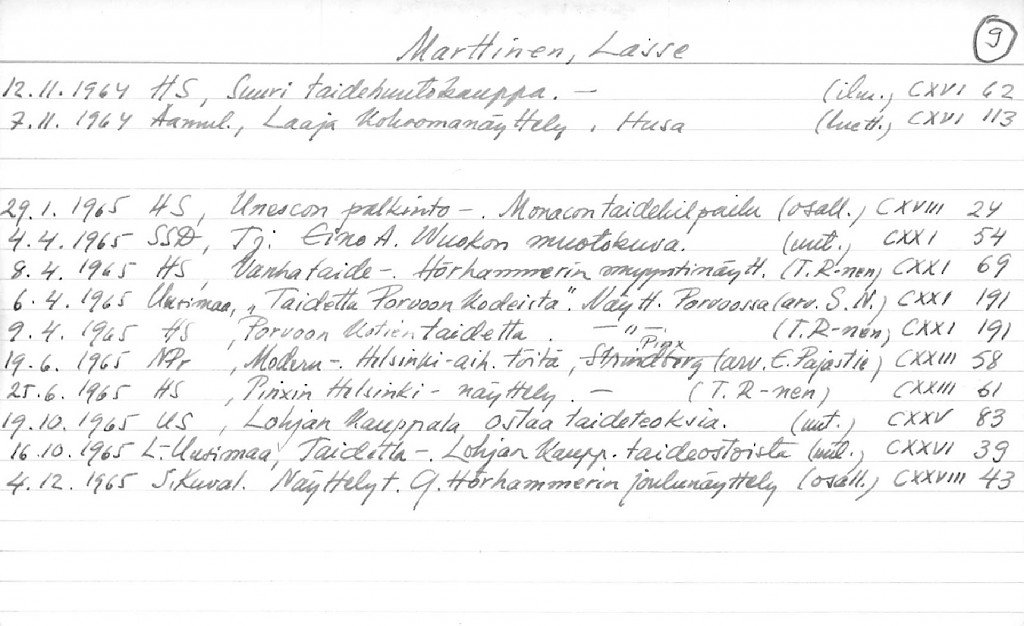 Marttinen, Lasse 9
12.11.1964 HS, Suuri taidehuutokauppa. — (ilm.) CXVI 62
7.11.1964 Aamul., Laaja kokoomanäyttely. Husa (luett.) CXVI 113
29.1.1965 HS, Unescon palkinto -. Monacon taidekilpailu (osall.) CXVIII 24
4.4.1965 SSD, Tj. Eino A. Wuokon muotokuva. (uut.) CXXI 54
8.4.1965 HS, Vanha taide -. Hörhammerin myyntinäytt. (T.R-nen) CXXI 69
6.4.1965 Uusimaa, "Taidetta Porvoon kodeista". Näytt. Porvoossa (arv. S.N.) CXXI 191
9.4.1965 HS, Porvoon kotien taidetta. —"— (T.R-nen) CXXI 191
19.6.1965 NPr, Modern -. Helsinki-aih. töitä, Strindberg Pinx (arv. E. Pajastie) CXXIII 58
25.6.1965 HS, Pinxin Helsinki-näyttely. — (T.R-nen) CXXIII 61
19.10.1965 US, Lohjan kauppala ostaa taideteoksia. (uut.) CXXV 83
16.10.1965 L-Uusimaa, Taidetta -. Lohjan kaupp. taideostoista (uut.) CXXVI 39
4.12.1965 S.Kuval. Näyttelyt. G. Hörhammerin joulunäyttely (osall.) CXXVIII 43